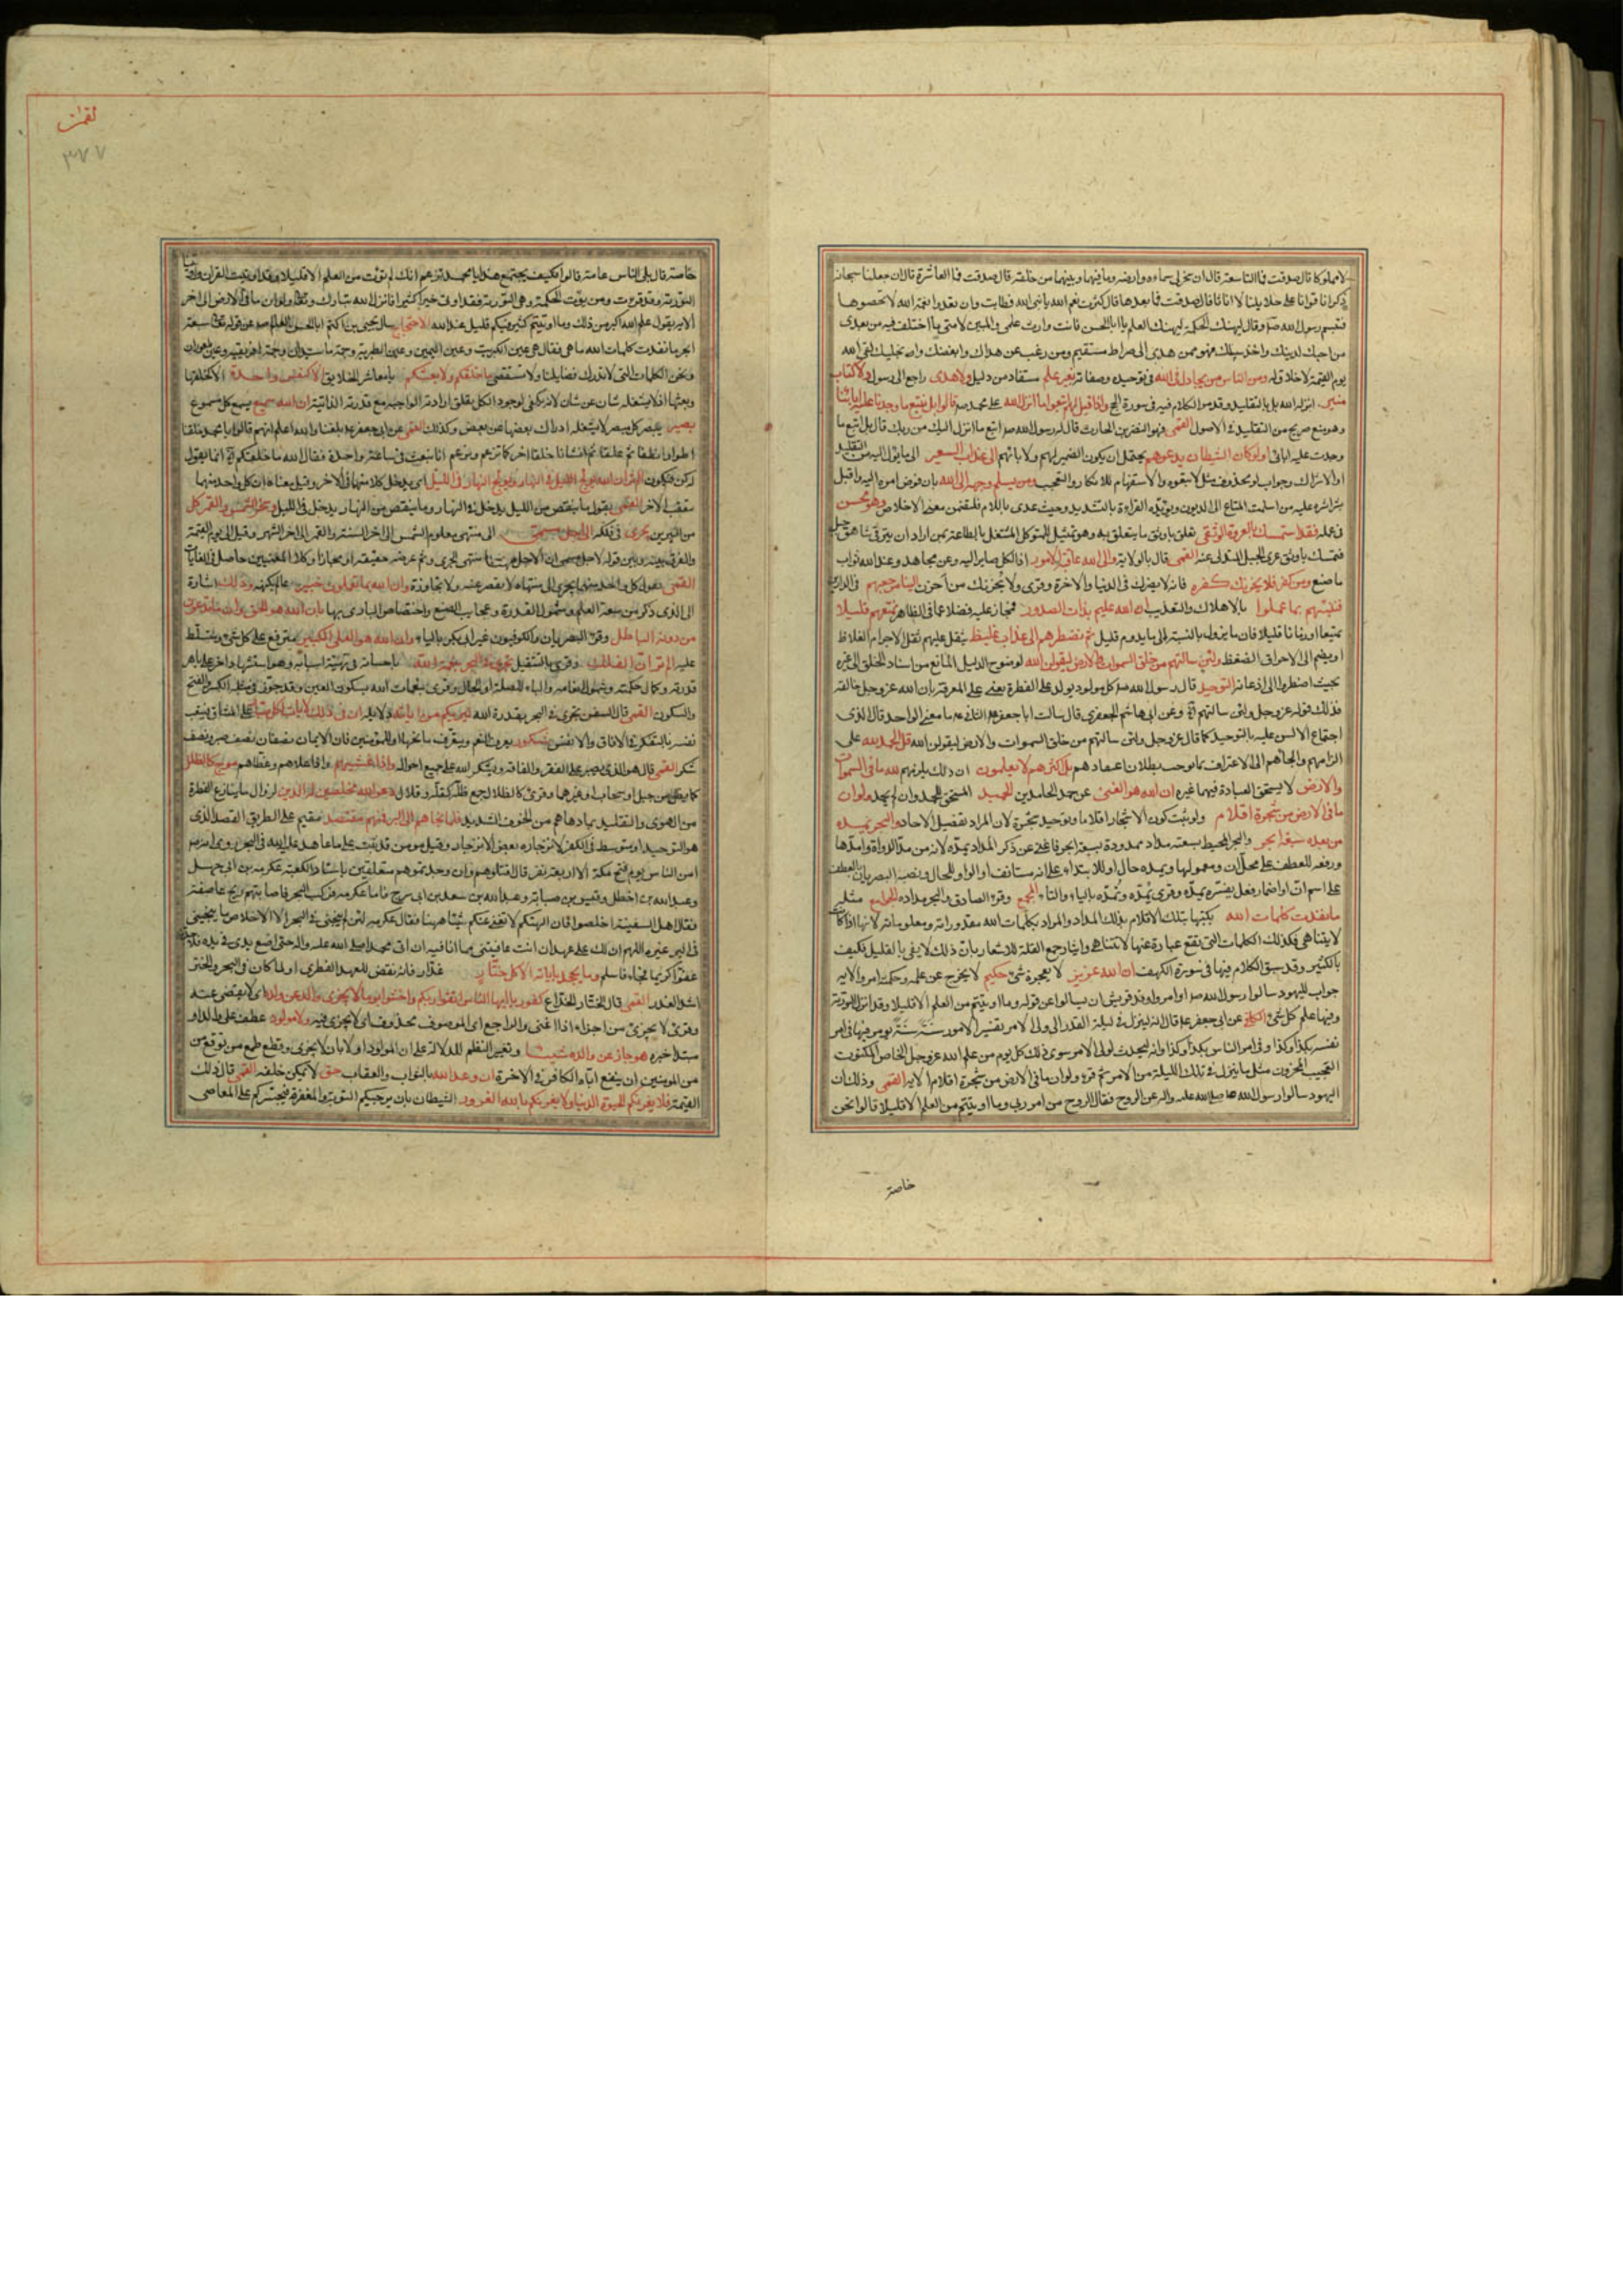 لا مملوكا قال صدقت فما التاسعة قال ان سخر لي سماءه وارضه وما فيهما وما بينهما من خلقه قال صدقت فما العاشرة قال ان جعلنا سبحانه
ذكرانا قواما على حلائلنا لا اناثا قال صدقت فما بعدها قال كثرت نعم الله يا نبي الله فطابت وان تعدوا نعمة الله لا تحصوها
فتبسم رسول الله ص وقال ليهنك الحكمة ليهنك العلم يا ابا الحسن فانت وارث علمي والمبين لامتي ما اختلفت فيه من بعدي
من احبك لدينك واخذ بسبيلك فهو ممن هدي الى صراط مستقيم ومن رغب عن هداك وابغضك لقي الله
يوم القيمة لا خلاق له ومن الناس من يجادل في الله في توحيده وصفاته بغير علم مستفاد من دليل ولا هدى راجع الى رسول ولا كتاب
منير انزله الله بل بالتقليد وقد مر الكلام فيه في سورة الحج واذا قيل لهم اتبعوا ما انزل الله على محمد ص قالوا بل نتبع ما وجدنا عليه اباءنا
وهو منع صريح من التقليد في الاصول القمي فهو النضر بن الحارث قال له رسول الله ص اتبع ما انزل اليك من ربك قال بل اتبع ما
وجدت عليه ابائي اولو كان الشيطان يدعوهم يحتمل ان يكون الضمير لهم ولابائهم الى عذاب السعير الى ما يؤل اليه من التقليد
او الاشراك وجواب لو محذوف مثل لاتبعوه والاستفهام للانكار والتعجيب ومن يسلم وجهه الى الله بان فوض امره اليه واقبل
بشراشره عليه من اسلمت المتاع الى الزبون ويؤيده القراءة بالتشديد وحيث عدى باللام فلتضمن معنى الاخلاص وهو محسن
في عمله فقد استمسك بالعروة الوثقى تعلق باوثق ما يتعلق به وهو تمثيل للمتوكل المشتغل بالطاعة بمن اراد ان يترقى شاهق جبل
فتمسك باوثق عرى الحبل المتدلي عنه القمي قال بالولاية والى الله عاقبة الامور اذ الكل صاير اليه وعن مجاهد وعند الله ثواب
ما صنع ومن كفر فلا يحزنك كفره فانه لا يضرك في الدنيا والاخرة وقرئ ولا يحزنك من احزن الينا مرجعهم في الدارين
فننبئهم بما عملوا بالاهلاك والتعذيب ان الله عليم بذات الصدور فمجاز عليه فضلا عما في الظاهر نمتعهم قليلا
تمتيعا او زمانا قليلا فان ما يزول بالنسبة الى ما يدوم قليل ثم نضطرهم الى عذاب غليظ يثقل عليهم ثقل الاجرام الغلاظ
او يضم الى الاحراق الضغط ولئن سالتهم من خلق السموات والارض ليقولن الله لوضوح الدليل المانع من اسناد الخلق الى غيره
بحيث اضطروا الى اذعانه التوحيد قال رسول الله ص كل مولود يولد على الفطرة يعني على المعرفة بان الله عز وجل خالقه
فذلك قوله عز وجل ولئن سالتهم وعن ابي هاشم الجعفري قال سالت ابا جعفر الثاني ع ما معنى الواحد قال الذي
اجتماع الالسن عليه بالتوحيد كما قال عز وجل ولئن سالتهم من خلق السموات والارض ليقولن الله قل الحمد لله على
الزامهم والجائهم الى الاعتراف بما يوجب بطلان اعتقادهم بل اكثرهم لا يعلمون ان ذلك يلزمهم لله ما في السموات
والارض لا يستحق العبادة فيهما غيره ان الله هو الغني عن حمد الحامدين الحميد المستحق للحمد وان لم يحمد ولو ان
ما في الارض من شجرة اقلام ولو ثبت كون الاشجار اقلاما وتوحيد شجرة لان المراد تفصيل الاحاد والبحر يمده
من بعده سبعة ابحر والبحر المحيط بسعته مداد ممدودة بسبعة ابحر فاغنى عن ذكر المداد يمده لانه من مد الدواة وامدها
ورفعه للعطف على محل ان ومعمولها ويمده حال او للابتداء على انه مستانف او الواو للحال ونصبه البصريان بالعطف
على اسم ان او اضمار فعل يفسره يمده وقرئ يمده وتمده بالياء والتاء المجمع وقرء الصادق والبحر مداده الجوامع مثله
ما نفدت كلمات الله بكتبها بتلك الاقلام بذلك المداد والمراد بكلمات الله مقدوراته ومعلوماته لانها اذا كانت
لا يتناهى فكذلك الكلمات التي تقع عبارة عنها لا تتناهى وايثار جمع القلة للاشعار بان ذلك لا يفي بالقليل فكيف
بالكثير وقد سبق الكلام فيها في سورة الكهف ان الله عزيز لا يعجزه شئ حكيم لا يخرج عن علمه وحكمته امر والاية
جواب لليهود سالوا رسول الله ص او امروا وفد قريش ان يسالوا عن قوله وما اوتيتم من العلم الا قليلا وقد انزل التورية
وفيها علم كل شئ الكافي عن ابي جعفر ع قال انه لينزل في ليلة القدر الى ولي الامر تفسير الامور سنة سنة يؤمر فيها في امر
نفسه بكذا وكذا وفي امر الناس بكذا وكذا وانه ليحدث لولي الامر سوى ذلك كل يوم من علم الله عز وجل الخاص المكنون
العجيب المخزون مثل ما ينزل في تلك الليلة من الامر ثم قرء ولو ان ما في الارض من شجرة اقلام الاية القمي وذلك ان
اليهود سالوا رسول الله صلى الله عليه واله عن الروح فقال الروح من امر ربي وما اوتيتم من العلم الا قليلا قالوا نحن
خاصة
لقمان
٣٧٧
خاصة قال بل الناس عامة قالوا فكيف يجتمع هذا يا محمد تزعم انك لم تؤت من العلم الا قليلا وقد اوتيت القران واوتينا
التورية وقد قرءت ومن يؤت الحكمة وهي التورية فقد اوتي خيرا كثيرا فانزل الله تبارك وتعالى ولو ان ما في الارض الى اخر
الاية يقول علم الله اكبر من ذلك وما اوتيتم كثير فيكم قليل عند الله الاحتجاج سال يحيى بن اكثم ابا الحسن العالم ع عن قوله تعالى سبعة
ابحر ما نفدت كلمات الله ما هي فقال هي عين الكبريت وعين اليمين وعين الطبرية وجمة ماسيدان وجمة افريقية وعين
ونحن الكلمات التي لا تدرك فضايلنا ولا تستقصى ما خلقكم ولا بعثكم يا معاشر الخلايق الا كنفس واحدة الا كخلقها
وبعثها اذ لا يشغله شان عن شان لانه يكفي لوجود الكل تعلق ارادته الواجبة مع قدرته الذاتية ان الله سميع يسمع كل مسموع
بصير يبصر كل مبصر لا يشغله ادراك بعضها عن بعض وكذلك القمي عن ابي جعفر ع بلغنا والله اعلم انهم قالوا يا محمد خلقنا
اطوارا نطفا ثم علقا ثم انشانا خلقا اخر كما تزعم وتزعم انا نبعث في ساعة واحدة فقال الله ما خلقكم انما يقول
له كن فيكون الم تر ان الله يولج الليل في النهار ويولج النهار في الليل اي يدخل كلا منهما في الاخر وقيل معناه ان كل واحد منهما
يتعقب الاخر القمي يقول ما ينقص من الليل يدخل في النهار وما ينقص من النهار يدخل في الليل وسخر الشمس والقمر كل
من النيرين يجري في فلكه الى اجل مسمى الى منتهى معلوم الشمس الى اخر السنة والقمر الى اخر الشهر وقيل الى يوم القيمة
والفرق بينه وبين قوله لاجل مسمى ان الاجل ههنا منتهى الجري وثم غرضه حقيقة او مجازا وكلا المعنيين حاصل في الغايات
القمي يقول كل واحد منهما يجري الى منتهاه لا يقصر عنه ولا يجاوزه وان الله بما تعملون خبير عالم بكنهه ذلك اشارة
الى الذي ذكر من سعة العلم وشمول القدرة وعجايب الصنع واختصاص الباري بها بان الله هو الحق وان ما يدعون
من دونه الباطل وقرء البصريان والكوفيون غير ابي بكر بالياء وان الله هو العلي الكبير مترفع على كل شئ ومتسلط
عليه الم تر ان الفلك وقرئ بالتثقيل تجري في البحر بنعمة الله باحسانه في تهيئة اسبابه وهو استشهاد اخر على باهر
قدرته وكمال حكمته وشمول انعامه والباء للصلة او الحال وقرئ بنعمات الله بسكون العين وقد جوز في مثله الكسر والفتح
والسكون القمي قال السفن تجري في البحر بقدرة الله ليريكم من اياته دلايله ان في ذلك لايات لكل صبار على المشاق فيتعب
نفسه بالتفكر في الافاق والانفس شكور يعرف النعم ويتعرف مانحها او للمؤمنين فان الايمان نصفان نصف صبر ونصف
شكر القمي قال هو الذي يصبر على الفقر والفاقة ويشكر الله على جميع احواله واذا غشيهم واذا علاهم وغطاهم موج كالظلل
كما يظل من جبل او سحاب او غيرهما وقرئ كالظلال جمع ظلة كقلة وقلال دعوا الله مخلصين له الدين لزوال ما ينازع الفطرة
من الهوى والتقليد بما دهاهم من الخوف الشديد فلما نجاهم الى البر فمنهم مقتصد مقيم على الطريق القصد الذي
هو التوحيد او متوسط في الكفر لانزجاره بعض الانزجار وقيل مؤمن قد ثبت على ما عاهد عليه الله في البحر روي انه
امن الناس يوم فتح مكة الا اربعة نفر قال اقتلوهم وان وجدتموهم متعلقين باستار الكعبة عكرمة بن ابي جهل
وعبد الله بن اخطل وقيس بن صبابة وعبد الله بن سعد بن ابي سرح فاما عكرمة فركب البحر فاصابتهم ريح عاصفة
فقال اهل السفينة اخلصوا فان الهتكم لا تغني عنكم شيئا ههنا فقال عكرمة لئن لم ينجني في البحر الا الاخلاص ما ينجيني
في البر غيره اللهم ان لك علي عهدا ان انت عافيتني مما انا فيه ان اتي محمدا صلى الله عليه واله حتى اضع يدي في يده
عفوا كريما فجاء فاسلم وما يجحد باياتنا الا كل ختار غدار فانه نقض للعهد الفطري او لما كان في البحر والختر
اشد الغدر القمي قال الختار الخداع كفور يا ايها الناس اتقوا ربكم واخشوا يوما لا يجزي والد عن ولده لا يقضي عنه
وقرئ لا يجزئ من اجزاء اذا اغنى والراجع الى الموصوف محذوف اي لا يجزي فيه ولا مولود عطف على والد او
مبتدا خبره هو جاز عن والده شيئا وتغيير النظم للدلالة على ان المولود اولى بان لا يجزي وقطع طمع من توقع من
من المؤمنين ان ينفع اباه الكافر في الاخرة ان وعد الله بالثواب والعقاب حق لا يمكن خلفه القمي قال ذلك
القيمة فلا تغرنكم الحيوة الدنيا ولا يغرنكم بالله الغرور الشيطان بان يرجيكم التوبة والمغفرة فيجسركم على المعاصي